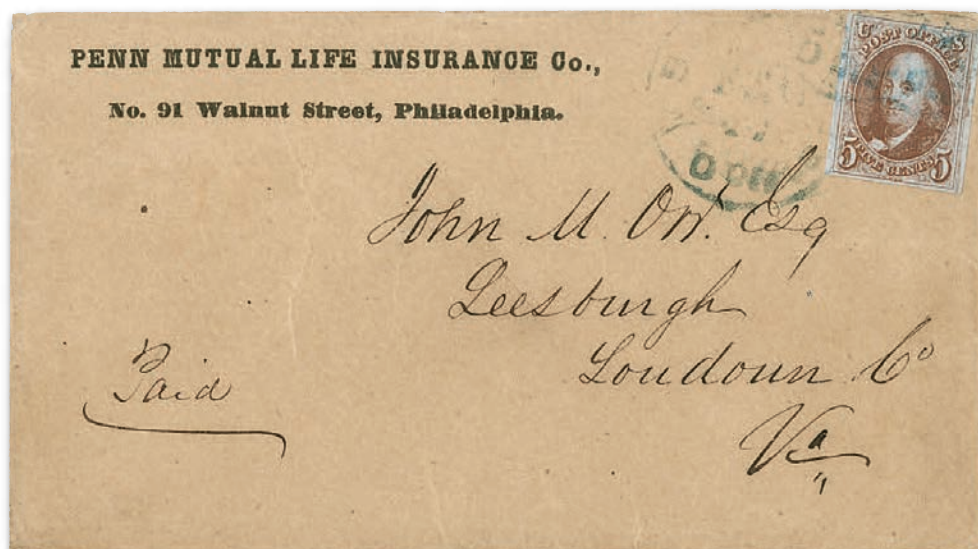 PENN MUTUAL LIFE INSURANCE Co.,
No. 91 Walnut Street, Philadelphia.
U S
POST OFFICE
5 FIVE CENTS 5
John M. Orr. Esq
Leesburgh
Loudoun Co
Va
Paid